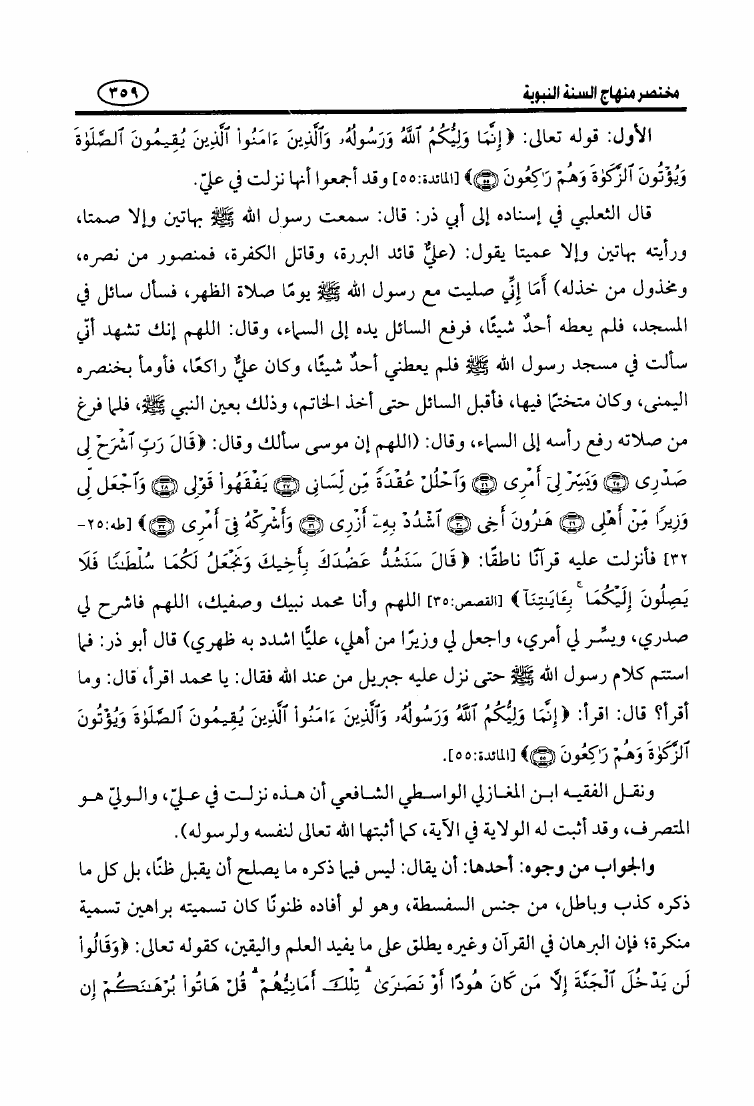 مختصر منهاج السنة النبوية ٣٥٩
الأول: قوله تعالى: ﴿ إِنَّمَا وَلِيُّكُمُ ٱللَّهُ وَرَسُولُهُۥ وَٱلَّذِينَ ءَامَنُوا۟ ٱلَّذِينَ يُقِيمُونَ ٱلصَّلَوٰةَ
وَيُؤْتُونَ ٱلزَّكَوٰةَ وَهُمْ رَٰكِعُونَ ۝٥٥﴾ [المائدة:٥٥] وقد أجمعوا أنها نزلت في عليّ.
قال الثعلبي في إسناده إلى أبي ذر: قال: سمعت رسول الله ﷺ بهاتين وإلا صمتا،
ورأيته بهاتين وإلا عميتا يقول: (عليٌّ قائد البررة، وقاتل الكفرة، فمنصور من نصره،
ومخذول من خذله) أَمَا إِنِّي صليت مع رسول الله ﷺ يومًا صلاة الظهر، فسأل سائل في
المسجد، فلم يعطه أحدٌ شيئًا، فرفع السائل يده إلى السماء، وقال: اللهم إنك تشهد أنّي
سألت في مسجد رسول الله ﷺ فلم يعطني أحدٌ شيئًا، وكان عليٌّ راكعًا، فأومأ بخنصره
اليمنى، وكان متختمًا فيها، فأقبل السائل حتى أخذ الخاتم، وذلك بعين النبي ﷺ، فلما فرغ
من صلاته رفع رأسه إلى السماء، وقال: (اللهم إن موسى سألك وقال: ﴿قَالَ رَبِّ ٱشْرَحْ لِى
صَدْرِى ۝٢٥ وَيَسِّرْ لِىٓ أَمْرِى ۝٢٦ وَٱحْلُلْ عُقْدَةً مِّن لِّسَانِى ۝٢٧ يَفْقَهُوا۟ قَوْلِى ۝٢٨ وَٱجْعَل لِّى
وَزِيرًا مِّنْ أَهْلِى ۝٢٩ هَـٰرُونَ أَخِى ۝٣٠ ٱشْدُدْ بِهِۦٓ أَزْرِى ۝٣١ وَأَشْرِكْهُ فِىٓ أَمْرِى ۝٣٢﴾ [طه:٢٥-
٣٢] فأنزلت عليه قرآنًا ناطقًا: ﴿ قَالَ سَنَشُدُّ عَضُدَكَ بِأَخِيكَ وَنَجْعَلُ لَكُمَا سُلْطَـٰنًا فَلَا
يَصِلُونَ إِلَيْكُمَا ۚ بِـَٔايَـٰتِنَآ ﴾ [القصص:٣٥] اللهم وأنا محمد نبيك وصفيك، اللهم فاشرح لي
صدري، ويسِّر لي أمري، واجعل لي وزيرًا من أهلي، عليًّا اشدد به ظهري) قال أبو ذر: فما
استتم كلام رسول الله ﷺ حتى نزل عليه جبريل من عند الله فقال: يا محمد اقرأ، قال: وما
أقرأ؟ قال: اقرأ: ﴿ إِنَّمَا وَلِيُّكُمُ ٱللَّهُ وَرَسُولُهُۥ وَٱلَّذِينَ ءَامَنُوا۟ ٱلَّذِينَ يُقِيمُونَ ٱلصَّلَوٰةَ وَيُؤْتُونَ
ٱلزَّكَوٰةَ وَهُمْ رَٰكِعُونَ ۝٥٥﴾ [المائدة:٥٥].
ونقل الفقيه ابن المغازلي الواسطي الشافعي أن هذه نزلت في عليّ، والوليّ هو
المتصرف، وقد أثبت له الولاية في الآية، كما أثبتها الله تعالى لنفسه ولرسوله).
والجواب من وجوه: أحدها: أن يقال: ليس فيما ذكره ما يصلح أن يقبل ظنًا، بل كل ما
ذكره كذب وباطل، من جنس السفسطة، وهو لو أفاده ظنونًا كان تسميته براهين تسمية
منكرة؛ فإن البرهان في القرآن وغيره يطلق على ما يفيد العلم واليقين، كقوله تعالى: ﴿وَقَالُوا۟
لَن يَدْخُلَ ٱلْجَنَّةَ إِلَّا مَن كَانَ هُودًا أَوْ نَصَـٰرَىٰ ۗ تِلْكَ أَمَانِيُّهُمْ ۗ قُلْ هَاتُوا۟ بُرْهَـٰنَكُمْ إِن